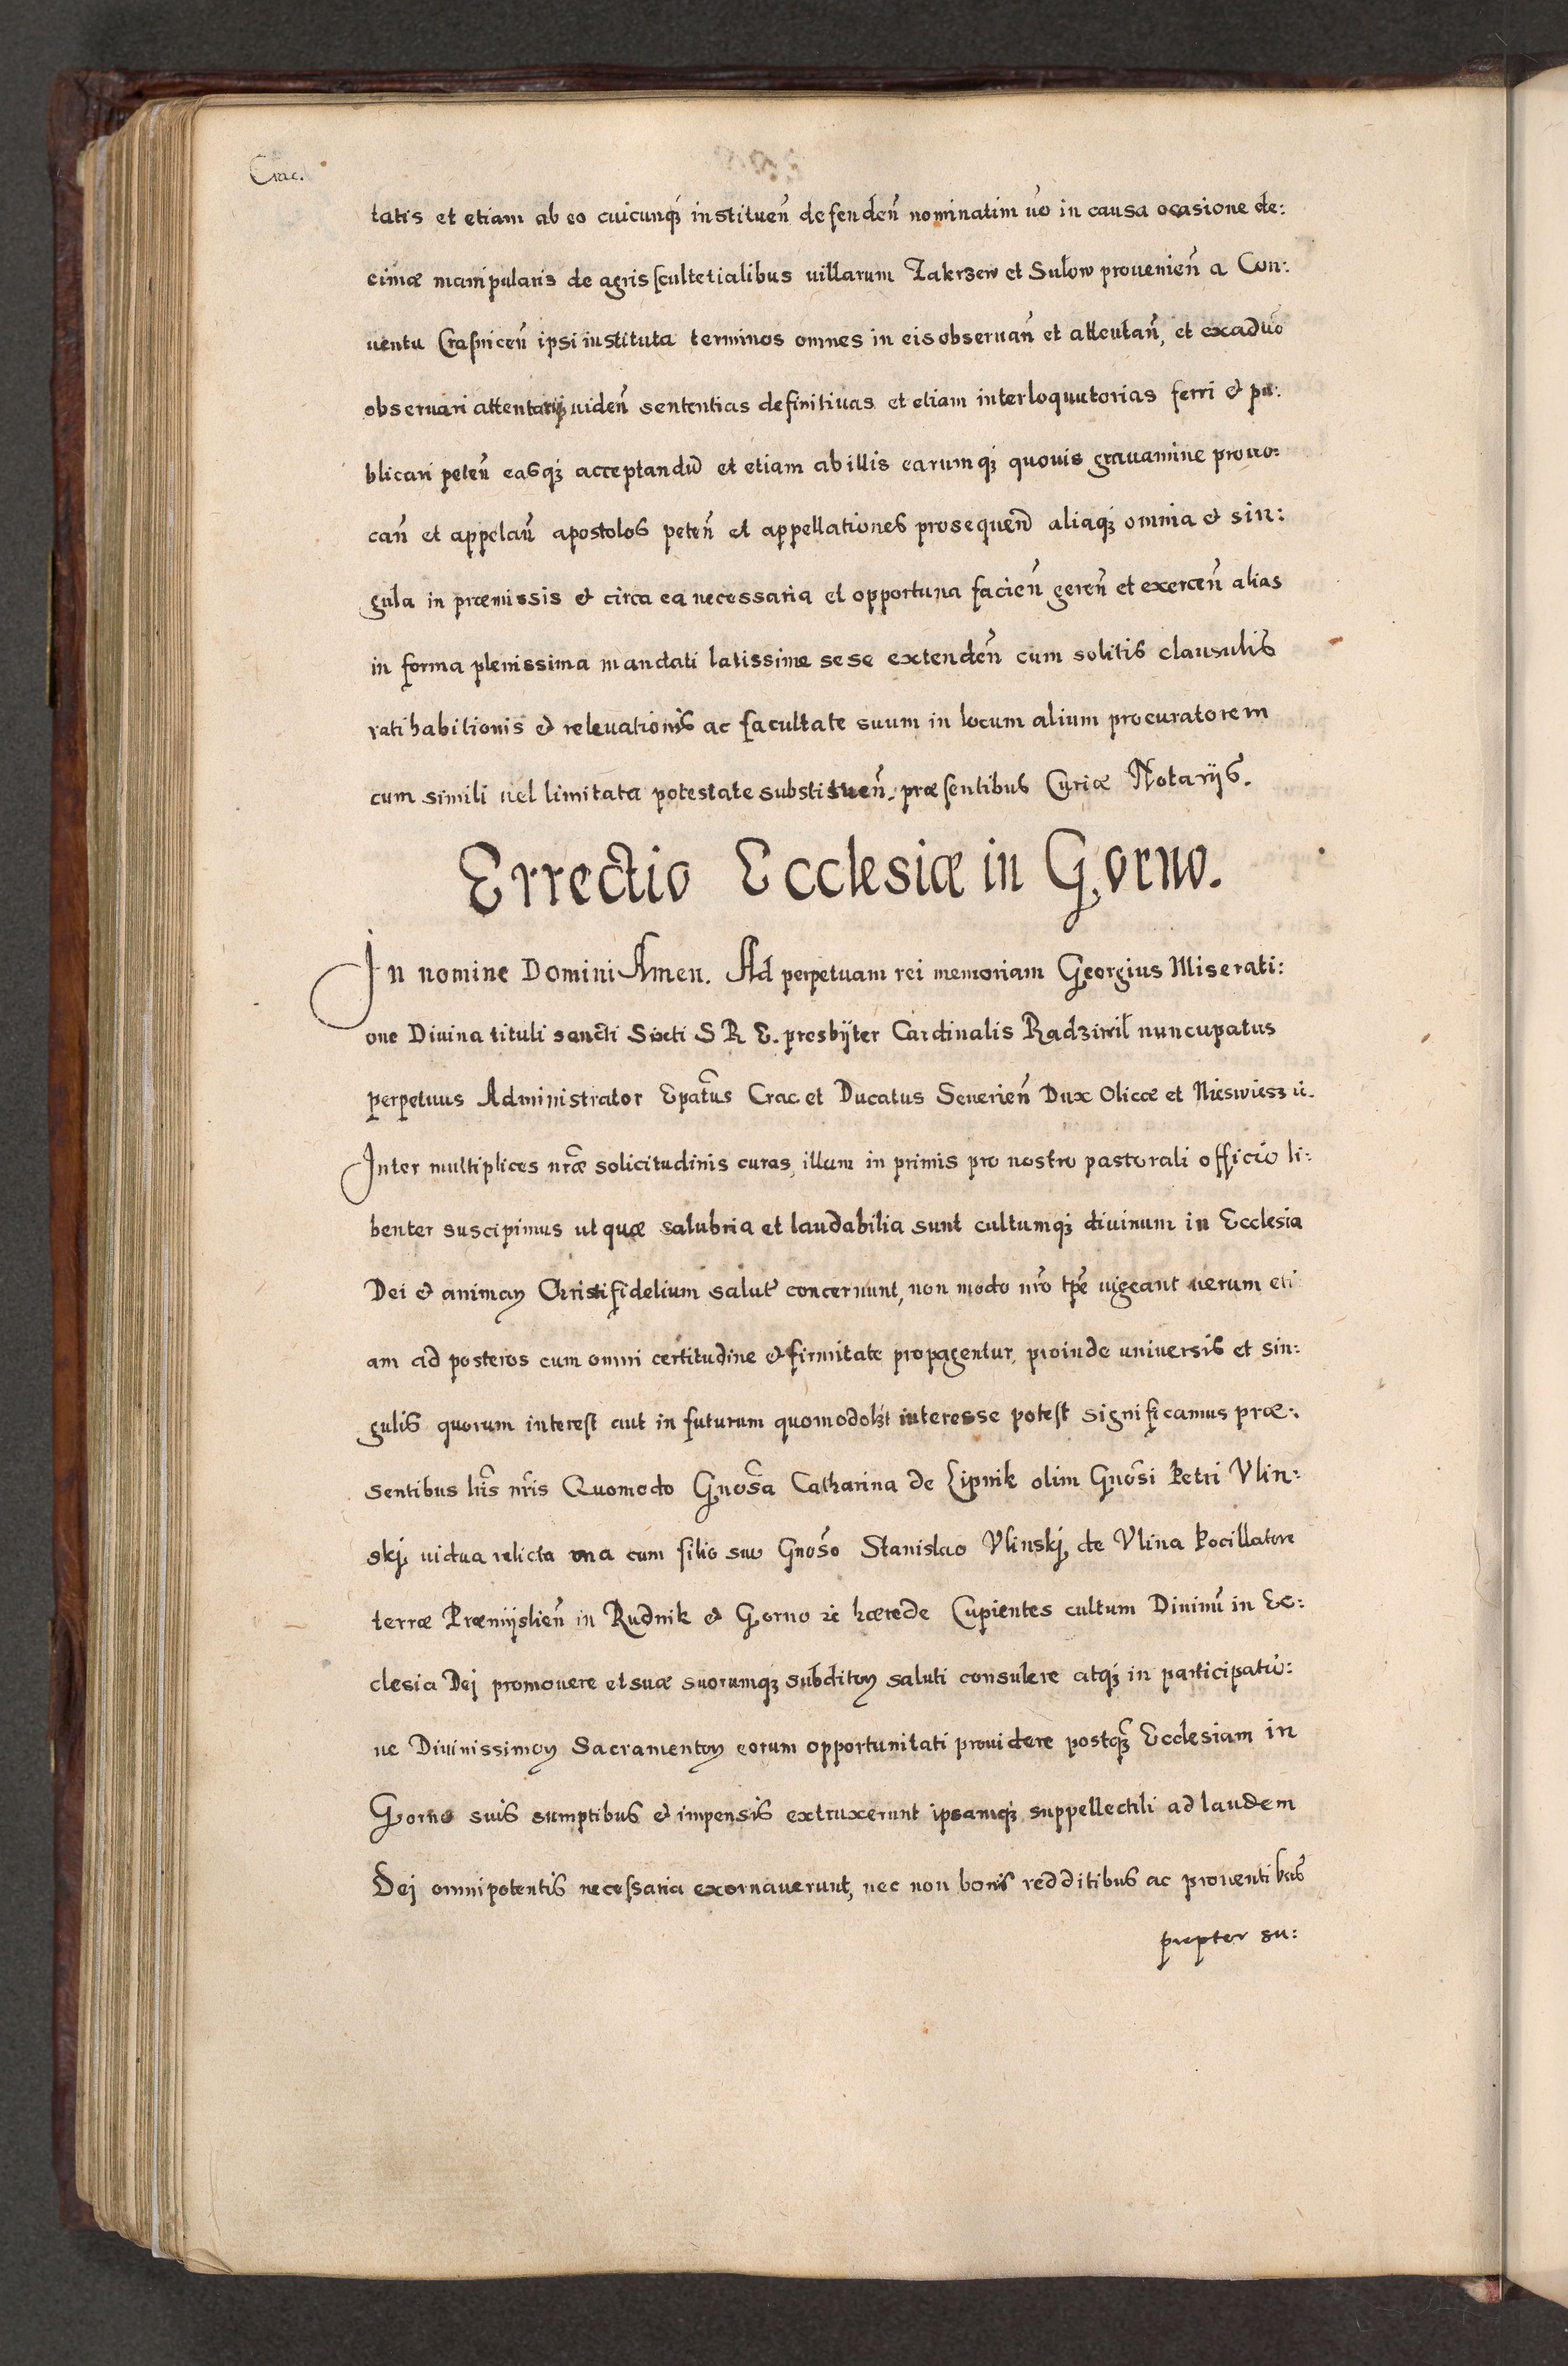 Crac.
tatis et etiam ab eo cuicunq́ instituen̄ defenden̄ nominatim ūo in causa ocasione de:
cimæ manipularis de agris scultetialibus uillarum Zakrzew et Sulow prouenien̄ a Con:
uentu Crasnicen̄ ipsi instituta terminos omnes in eis observan̄ et attentan̄, et ex aduō
observari attentariq̨ uiden̄ sententias definitiuas et etiam interloquutorias ferri & pu:
blicari peten̄ easq̨ acceptandū et etiam ab illis earumq̨ quouis grauamine prouo:
can̄ et appelan̄ apostolos peten̄ et appellationes prosequen̄ aliaq̨ omnia & sin:
gula in præmissis & circa ea necessaria et opportuna facien̄ geren̄ et exercen̄ alias
in forma plenissima mandati latissime sese extenden̄ cum solitis clausulis
ratihabitionis & releuationis ac facultate suum in locum alium procuratorem
cum simili uel limitata potestate substituen̄. præsentibus Curiæ Notarijs.
Errectio Ecclesiæ in Gorno.
In nomine Domini Amen. Ad perpetuam rei memoriam Georgius Miserati:
one Diuina tituli sancti Sixti S R E. presbÿter Cardinalis Radziwił nuncupatus
perpetuus Administrator Ep̄atus Crac et Ducatus Seuerien̄ Dux Olicæ et Nieswiesz ii.
Inter multiplices nr̄æ solicitudinis curas, illum in primis pro nostro pastorali officio li:
benter suscipimus ut quæ salubria et laudabilia sunt cultumq̨ diuinum in Ecclesia
Dei & animaꝝ Christifidelium salutē concernunt, non modo nr̄o tp̄e uigeant uerum eti
am ad posteros cum omni certitudine & firmitate propagentur, proinde universis et sin:
gulis quorum interest aut in futurum quomodolꝫt interesse potest significamus præ:
sentibus lr̄is nr̄is Quomodo Gnōsa Catharina de Lipnik olim Gnōsi Petri Vlin:
skj uidua relicta una cum filio suo Gnōso Stanislao Vlinskj de Vlina Pocillatore
terræ Præmijslien̄ in Rudnik & Gorno ꝛc hærede Cupientes cultum Diuinū in Ec:
clesia Dej promouere et suæ suorumq̨ subditoꝝ saluti consulere atq̨ in participatio:
ne Diuinissimoꝝ Sacramentoꝝ eorum opportunitati prouidere postq̨̄ Ecclesiam in
Gorno suis sumptibus & impensis extruxerunt ipsamq̨ suppellectili ad laudem
Dej omnipotentis necessaria exornauerunt, nec non bonis redditibus ac prouentibus
propter su: